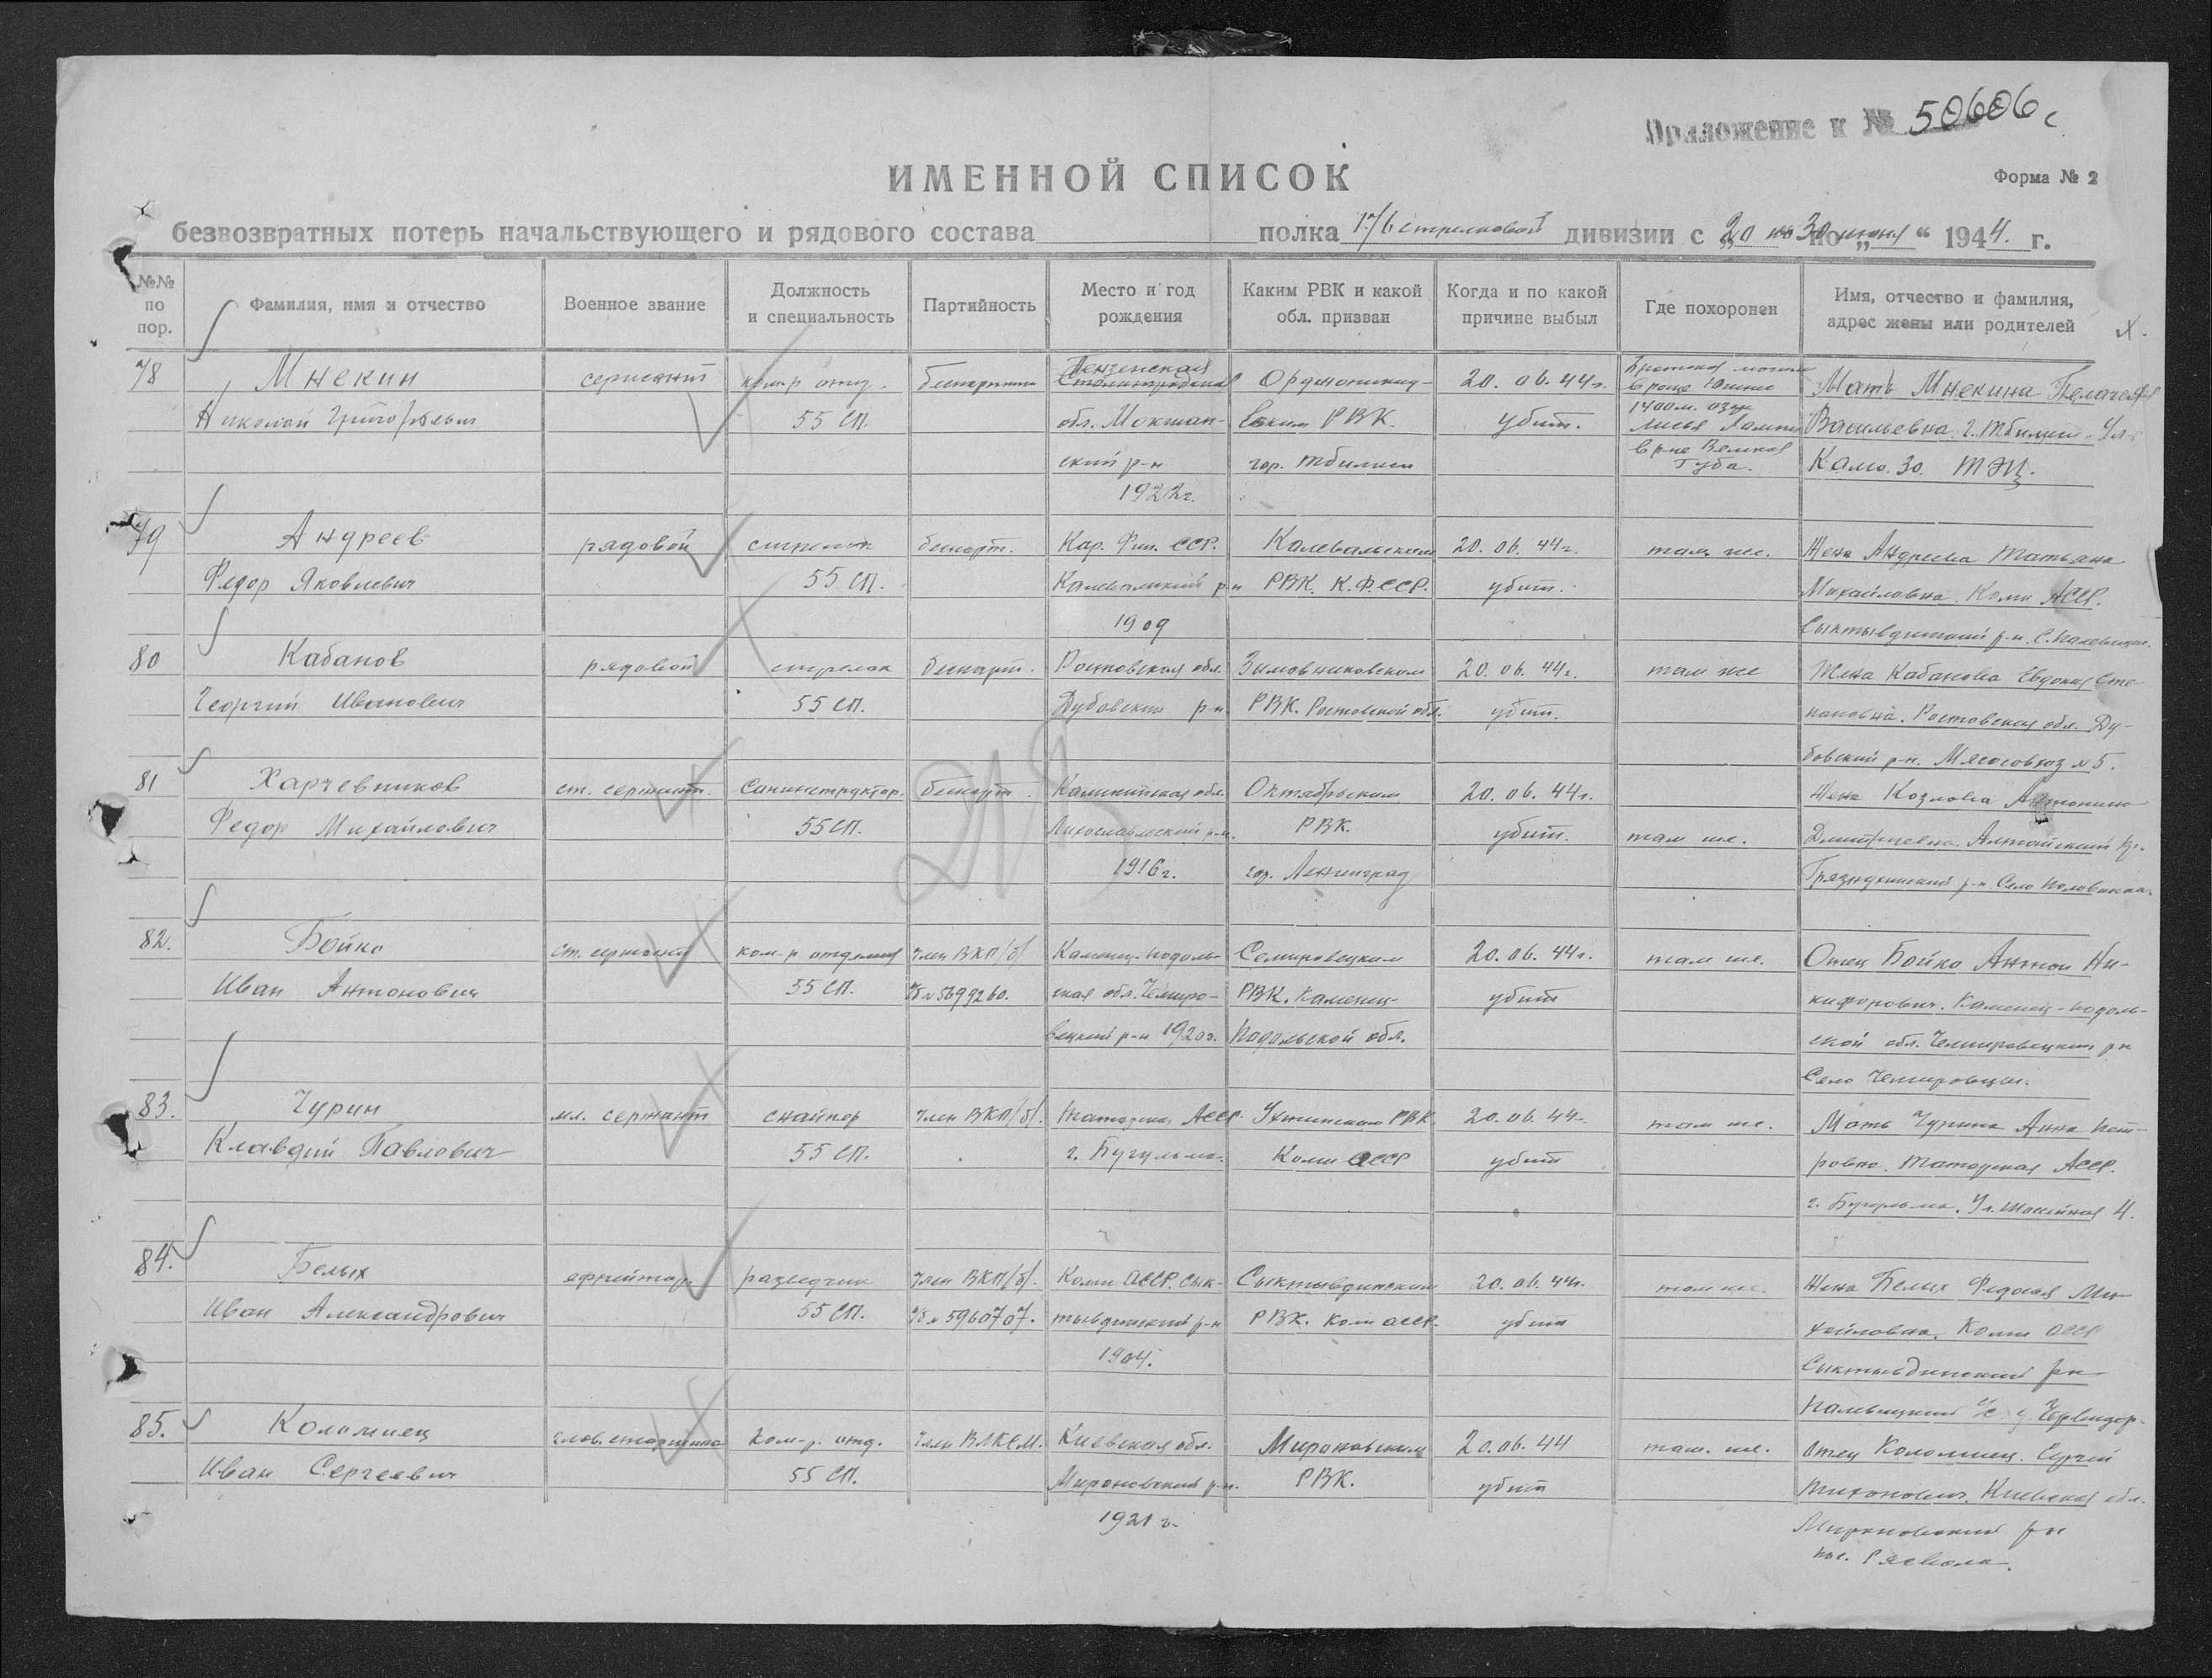 Приложение к № 50606с
ИМЕННОЙ СПИСОК
Форма № 2
безвозвратных потерь начальствующего и рядового состава полка 176 стрелковой дивизии с „20 по 30 июня“ 1944 г.
№№ по пор.
Фамилия, имя и отчество
Военное звание
Должность и специальность
Партийность
Место и год рождения
Каким РВК и какой обл. призван
Когда и по какой причине выбыл
Где похоронен
Имя, отчество и фамилия, адрес жены или родителей
78 Мнекин сержант ком-р отд. Пензенская Орджоникид- 20.06.44г. Братская могила Мать Мнекина Пелагея
Николай Григорьевич 55 СП. обл. Мокшан- вским РВК. убит. 1400 м. Васильевна г. Тбилиси. Ул.
ский р-н гор. Тбилиси в р-не Великая Губа. Камо. 30. ТЭЦ.
1922г.
79 Андреев рядовой стрелок беспарт. Кар. Фин. ССР. Калевальским 20.06.44г. там же. Жена Андреева Татьяна
Федор Яковлевич 55 СП. Калевальский р-н РВК. К.Ф.ССР. убит. Михайловна. Коми АССР.
1909 Сыктывдинский р-н.
80 Кабанов рядовой стрелок беспарт. Ростовская обл. Зимовниковским 20.06.44г. там же Жена Кабанова Евдокия Сте-
Георгий Иванович 55 СП. Дубовский р-н. РВК. Ростовской обл. убит. пановна. Ростовская обл. Ду-
бовский р-н. Мясосовхоз № 5.
81 Харчевников ст. сержант. Санинструктор. беспарт. Калининская обл. Октябрьским 20.06.44г. Жена Козлова Антонина
Федор Михайлович 55 СП. Лихославльский р-н. РВК. убит. там же. Дмитриевна. Алтайский кр.
1916г. гор. Ленинград р-н Село
82. Бойко ст. сержант ком-р отделения Член ВКП/б/ Каменец-подоль- Семировецким 20.06.44г. там же. Отец Бойко Антон Ни-
Иван Антонович 55 СП. № 5699260. ская обл. Чемиро- РВК. Каменец- убит кифорович. Каменец-подоль-
вецкий р-н 1920г. Подольской обл. ской обл. Чемировецкий р-н
Село Чемировцы.
83. Чурин мл. сержант снайпер Член ВКП/б/. Татарская АССР. Ухтинским РВК 20.06.44г. там же. Мать Чурина Анна Пет-
Клавдий Павлович 55 СП. г. Бугульма. Коми АССР убит ровна. Татарская АССР.
г. Бугульма. Ул. 4.
84. Белых ефрейтор. разведчик Член ВКП/б/. Коми АССР. Сык- Сыктывдинским 20.06.44г. там же. Жена Белых Федосья Ми-
Иван Александрович 55 СП. № 5960707. тывдинский р-н РВК. Коми АССР. убит хайловна. Коми АССР
1904. Сыктывдинский р-н
Палевицкий с/с
85. Коломиец глав. старшина Ком-р. отд. Член ВЛКСМ. Киевская обл. Мироновским 20.06.44 там. же. Отец Коломиец. Сергей
Иван Сергеевич 55 СП. Мироновский р-н. РВК. убит Тихонович. Киевская обл.
1921г. Мироновский р-н